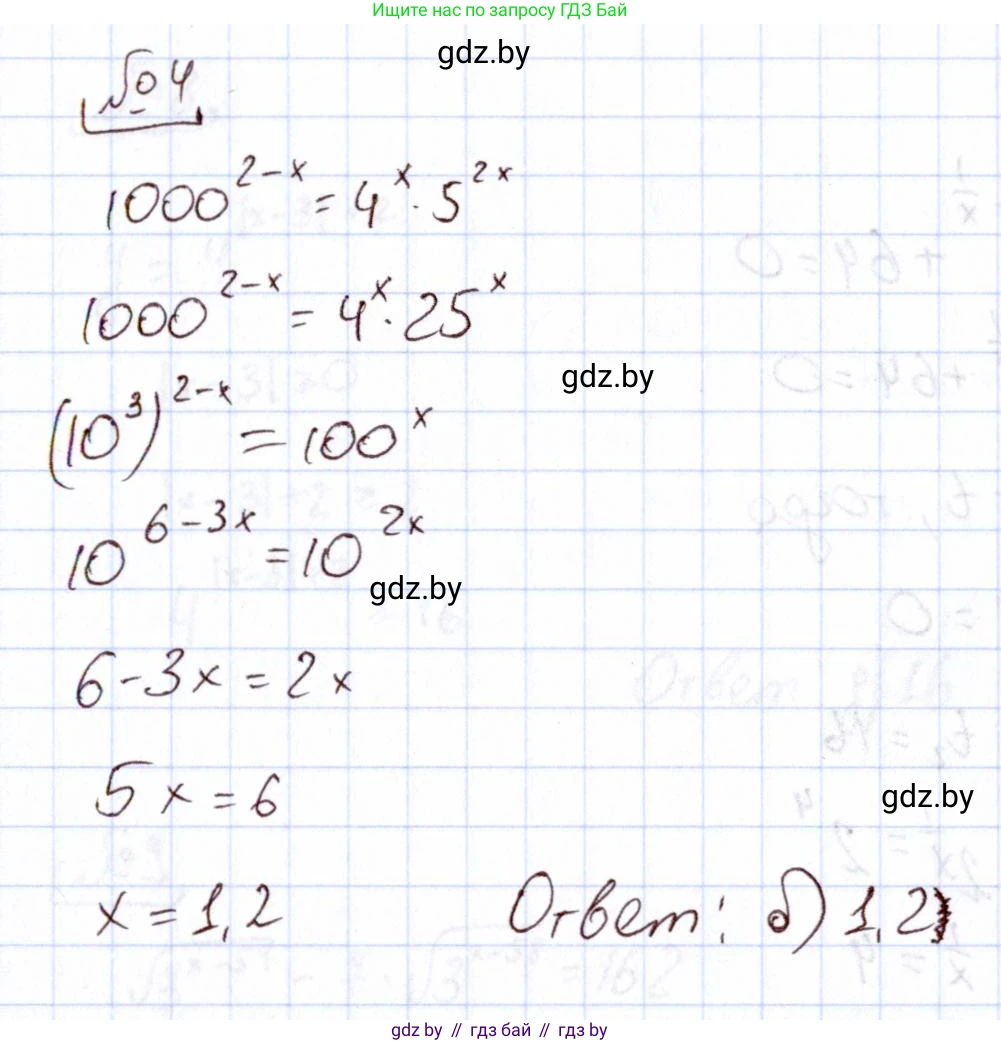 Ищите нас по запросу ГДЗ Бай
gdz.by
№ 4
1000^{2-x} = 4^x · 5^{2x}
1000^{2-x} = 4^x · 25^x
gdz.by
(10^3)^{2-x} = 100^x
10^{6-3x} = 10^{2x}
gdz.by
6-3x = 2x
5x = 6
gdz.by
x = 1,2
Ответ: б) 1,2
gdz by // гдз бай // гдз by